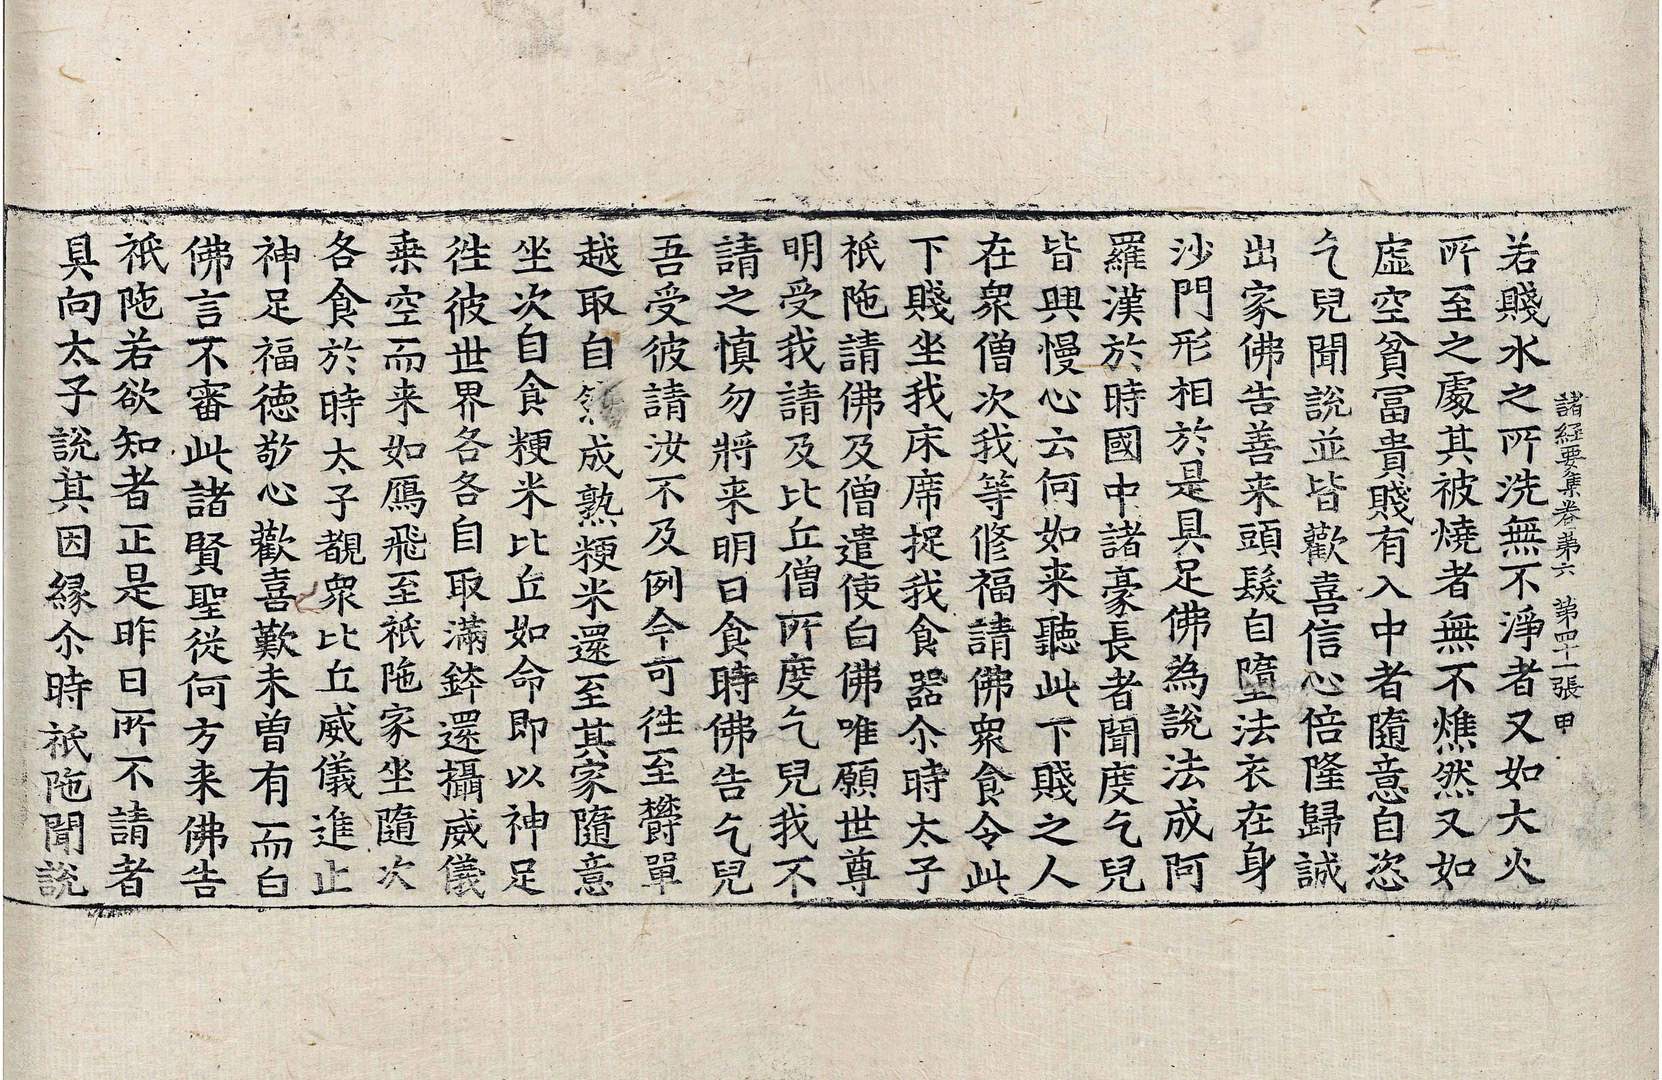 諸經要集卷第六　第四十一張　甲
若賤水之所洗無不淨者又如大火
所至之處其被燒者無不燋然又如
虛空貧冨貴賤有入中者隨意自恣
乞兒聞說並皆歡喜信心倍隆歸誠
出家佛告善来頭髮自墮法衣在身
沙門形相於是具足佛為說法成阿
羅漢於時國中諸豪長者聞度乞兒
皆興慢心云何如来聽此下賤之人
在衆僧次我等修福請佛衆食令此
下賤坐我床席捉我食器尒時太子
祇陁請佛及僧遣使白佛唯願世尊
明受我請及比丘僧所度乞兒我不
請之慎勿將来明日食時佛告乞兒
吾受彼請汝不及例今可往至欝單
越取自成熟粳米還至其家隨意
坐次自食粳米比丘如命即以神足
往彼世界各各自取滿鉢還攝威儀
乗空而来如鴈飛至祇陁家坐隨次
各食於時太子覩衆比丘威儀進止
神足福徳敬心歡喜歎未曽有而白
佛言不審此諸賢聖從何方来佛告
祇陁若欲知者正是昨日所不請者
具向太子說其因縁尒時祇陁聞說